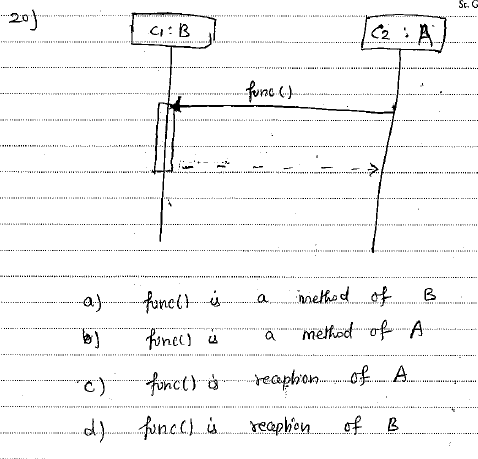 Sc. G
20)
C1 : B
C2 : A
func()
a) func() is a method of B
b) func() is a method of A
c) func() is reception of A
d) func() is reception of B